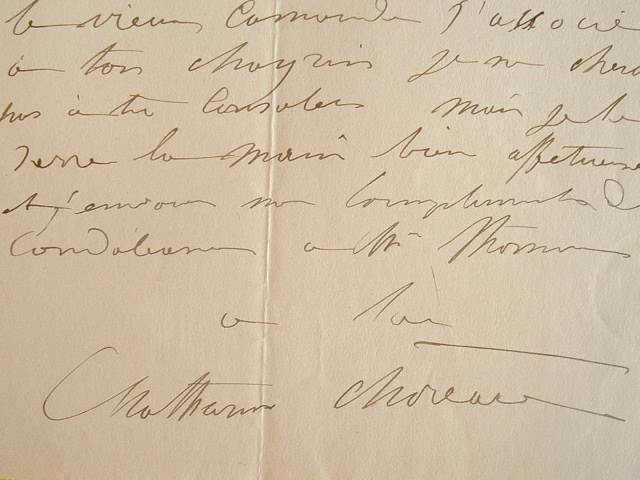 le vieux Camarade s'associe
à ton chagrin je ne cher
pas à te Consoler mais je te
serre la main bien affectueuse
et j'envoie mes Compliments de
Condoléances à Mr Thomas
à toi